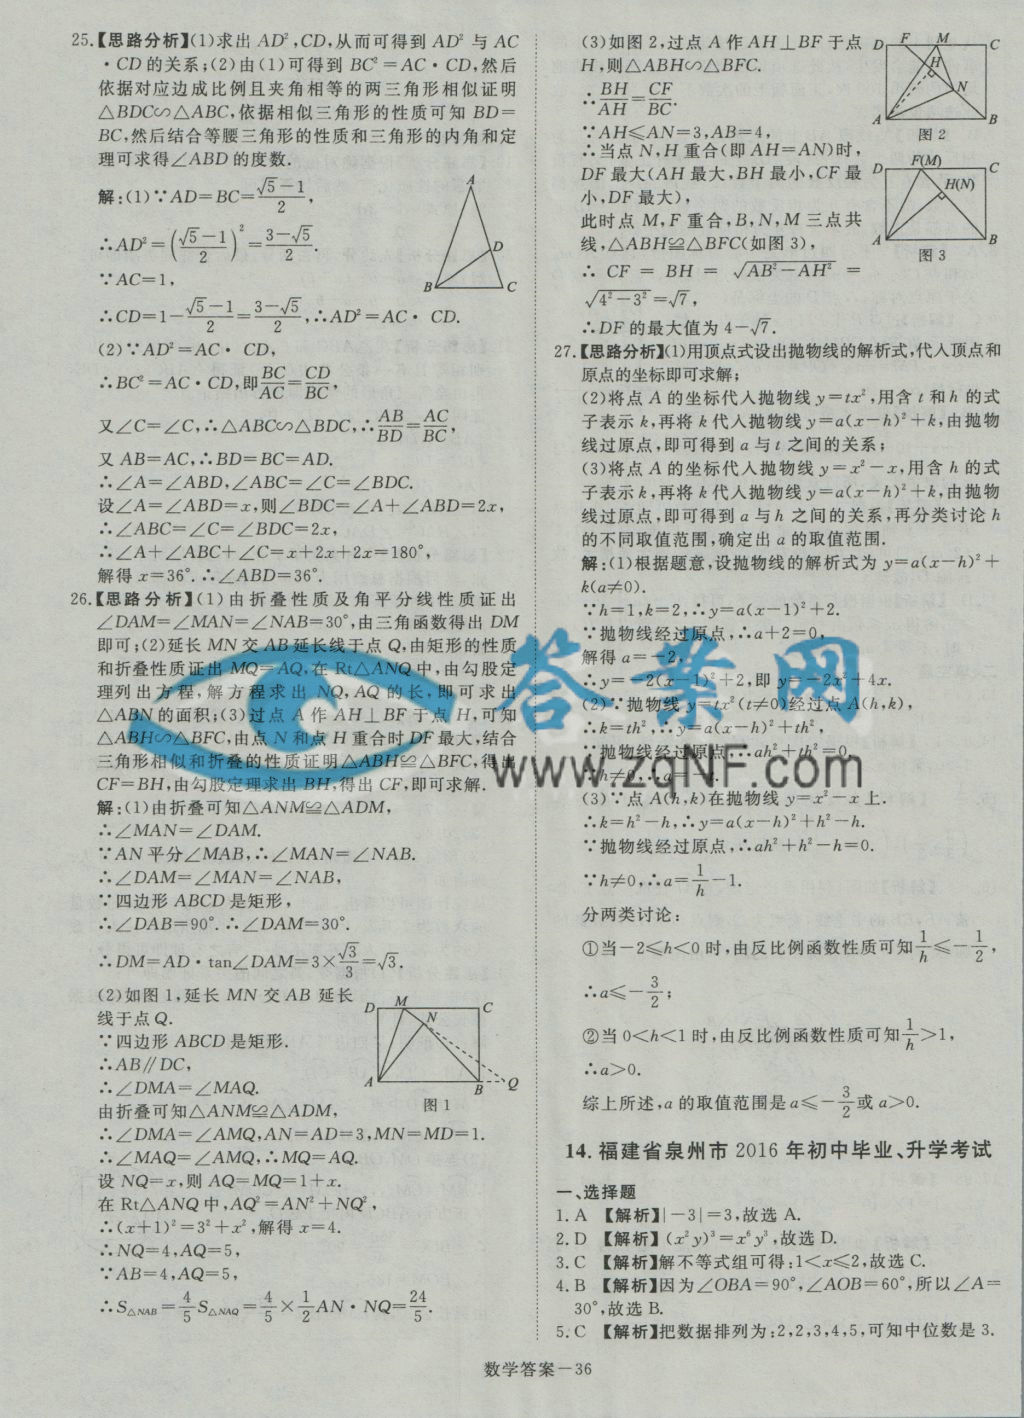 25.【思路分析】(1)求出 AD²,CD,从而可得到 AD² 与 AC
·CD的关系;(2)由(1)可得到 BC²=AC·CD,然后
依据对应边成比例且夹角相等的两三角形相似证明
△BDC∽△ABC,依据相似三角形的性质可知 BD=
BC,然后结合等腰三角形的性质和三角形的内角和定
理可求得∠ABD的度数.
解:(1)∵AD=BC=(√5-1)/2,
∴AD²=((√5-1)/2)²=(3-√5)/2.
∵AC=1,
∴CD=1-(√5-1)/2=(3-√5)/2,∴AD²=AC·CD.
(2)∵AD²=AC·CD,
∴BC²=AC·CD,即BC/AC=CD/BC,
又∠C=∠C,∴△ABC∽△BDC,∴AB/BD=AC/BC,
又AB=AC,∴BD=BC=AD.
∴∠A=∠ABD,∠ABC=∠C=∠BDC.
设∠A=∠ABD=x,则∠BDC=∠A+∠ABD=2x,
∴∠ABC=∠C=∠BDC=2x,
∴∠A+∠ABC+∠C=x+2x+2x=180°,
解得 x=36°.∴∠ABD=36°.
A
D
B
C
26.【思路分析】(1)由折叠性质及角平分线性质证出
∠DAM=∠MAN=∠NAB=30°,由三角函数得出 DM
即可;(2)延长 MN 交 AB延长线于点 Q,由矩形的性质
和折叠性质证出 MQ=AQ,在 Rt△ANQ中,由勾股定
理列出方程,解方程求出 NQ,AQ 的长,即可求出
△ABN的面积;(3)过点 A 作 AH⊥BF 于点 H,可知
△ABH∽△BFC,由点 N 和点 H 重合时DF最大,结合
三角形相似和折叠的性质证明△ABH≌△BFC,得出
CF=BH,由勾股定理求出 BH,得出 CF,即可求解.
解:(1)由折叠可知△ANM≌△ADM,
∴∠MAN=∠DAM.
∵AN平分∠MAB,∴∠MAN=∠NAB.
∴∠DAM=∠MAN=∠NAB,
∵四边形 ABCD是矩形,
∴∠DAB=90°.∴∠DAM=30°.
∴DM=AD·tan∠DAM=3×√3/3=√3.
(2)如图 1,延长 MN 交 AB 延长
线于点Q.
∵四边形 ABCD是矩形.
∴AB∥DC,
∴∠DMA=∠MAQ.
由折叠可知△ANM≌△ADM,
∴∠DMA=∠AMQ,AN=AD=3,MN=MD=1.
∴∠MAQ=∠AMQ,∴MQ=AQ.
设 NQ=x,则 AQ=MQ=1+x.
在Rt△ANQ中,AQ²=AN²+NQ²,
∴(x+1)²=3²+x²,解得 x=4.
∴NQ=4,AQ=5,
∵AB=4,AQ=5,
∴S△NAB=4/5S△NAQ=4/5×1/2AN·NQ=24/5.
D M C
N
A B Q
图 1
(3)如图 2,过点 A 作 AH⊥BF 于点
H,则△ABH∽△BFC.
∴BH/AH=CF/BC.
∵AH≤AN=3,AB=4,
∴当点 N,H 重合(即 AH=AN)时,
DF最大(AH 最大,BH 最小,CF最
小,DF最大),
此时点 M,F 重合,B,N,M 三点共
线,△ABH≌△BFC(如图 3),
∴ CF = BH = √(AB²-AH²) =
√(4²-3²)=√7,
∴DF的最大值为 4-√7.
D F M C
H
N
A B
图 2
D F(M) C
H(N)
A B
图 3
27.【思路分析】(1)用顶点式设出抛物线的解析式,代人顶点和
原点的坐标即可求解;
(2)将点 A 的坐标代人抛物线 y=tx²,用含 t 和 h 的式
子表示 k,再将 k 代人抛物线 y=a(x-h)²+k,由抛物
线过原点,即可得到 a 与 t 之间的关系;
(3)将点 A 的坐标代人抛物线 y=x²-x,用含 h 的式
子表示 k,再将 k 代人抛物线 y=a(x-h)²+k,由抛物
线过原点,即可得到 a 与 h 之间的关系,再分类讨论 h
的不同取值范围,确定出 a 的取值范围.
解:(1)根据题意,设抛物线的解析式为 y=a(x-h)²+
k(a≠0).
∵h=1,k=2,∴y=a(x-1)²+2.
∵抛物线经过原点,∴a+2=0,
解得 a=-2,
∴y=-2(x-1)²+2,即 y=-2x²+4x.
(2)∵抛物线 y=tx²(t≠0)经过点 A(h,k),
∴k=th²,∴y=a(x-h)²+th²,
∵抛物线经过原点,∴ah²+th²=0,
∵h≠0,∴a=
(3)∵点 A(h,k)在抛物线 y=x²-x上.
∴k=h²-h,∴y=a(x-h)²+h²-h.
∵抛物线经过原点,∴ah²+h²-h=0.
∵h≠0,∴a=1/h-1.
分两类讨论:
①当-2≤h<0 时,由反比例函数性质可知1/h≤-1/2,
∴a≤-3/2;
②当 0<h<1 时,由反比例函数性质可知1/h>1,
∴a>0.
综上所述,a 的取值范围是 a≤-3/2或 a>0.
14.福建省泉州市 2016 年初中毕业、升学考试
一、选择题
1.A 【解析】|-3|=3,故选 A.
2.D 【解析】(x²y)³=x⁶y³,故选 D.
3.C 【解析】解不等式组可得:1<x≤2,故选 C.
4.B 【解析】因为∠OBA=90°,∠AOB=60°,所以∠A=
30°,故选 B.
5.C 【解析】把数据排列为:2,2,3,4,5,可知中位数是 3.
数学答案-36
答案网
www.zqNF.com